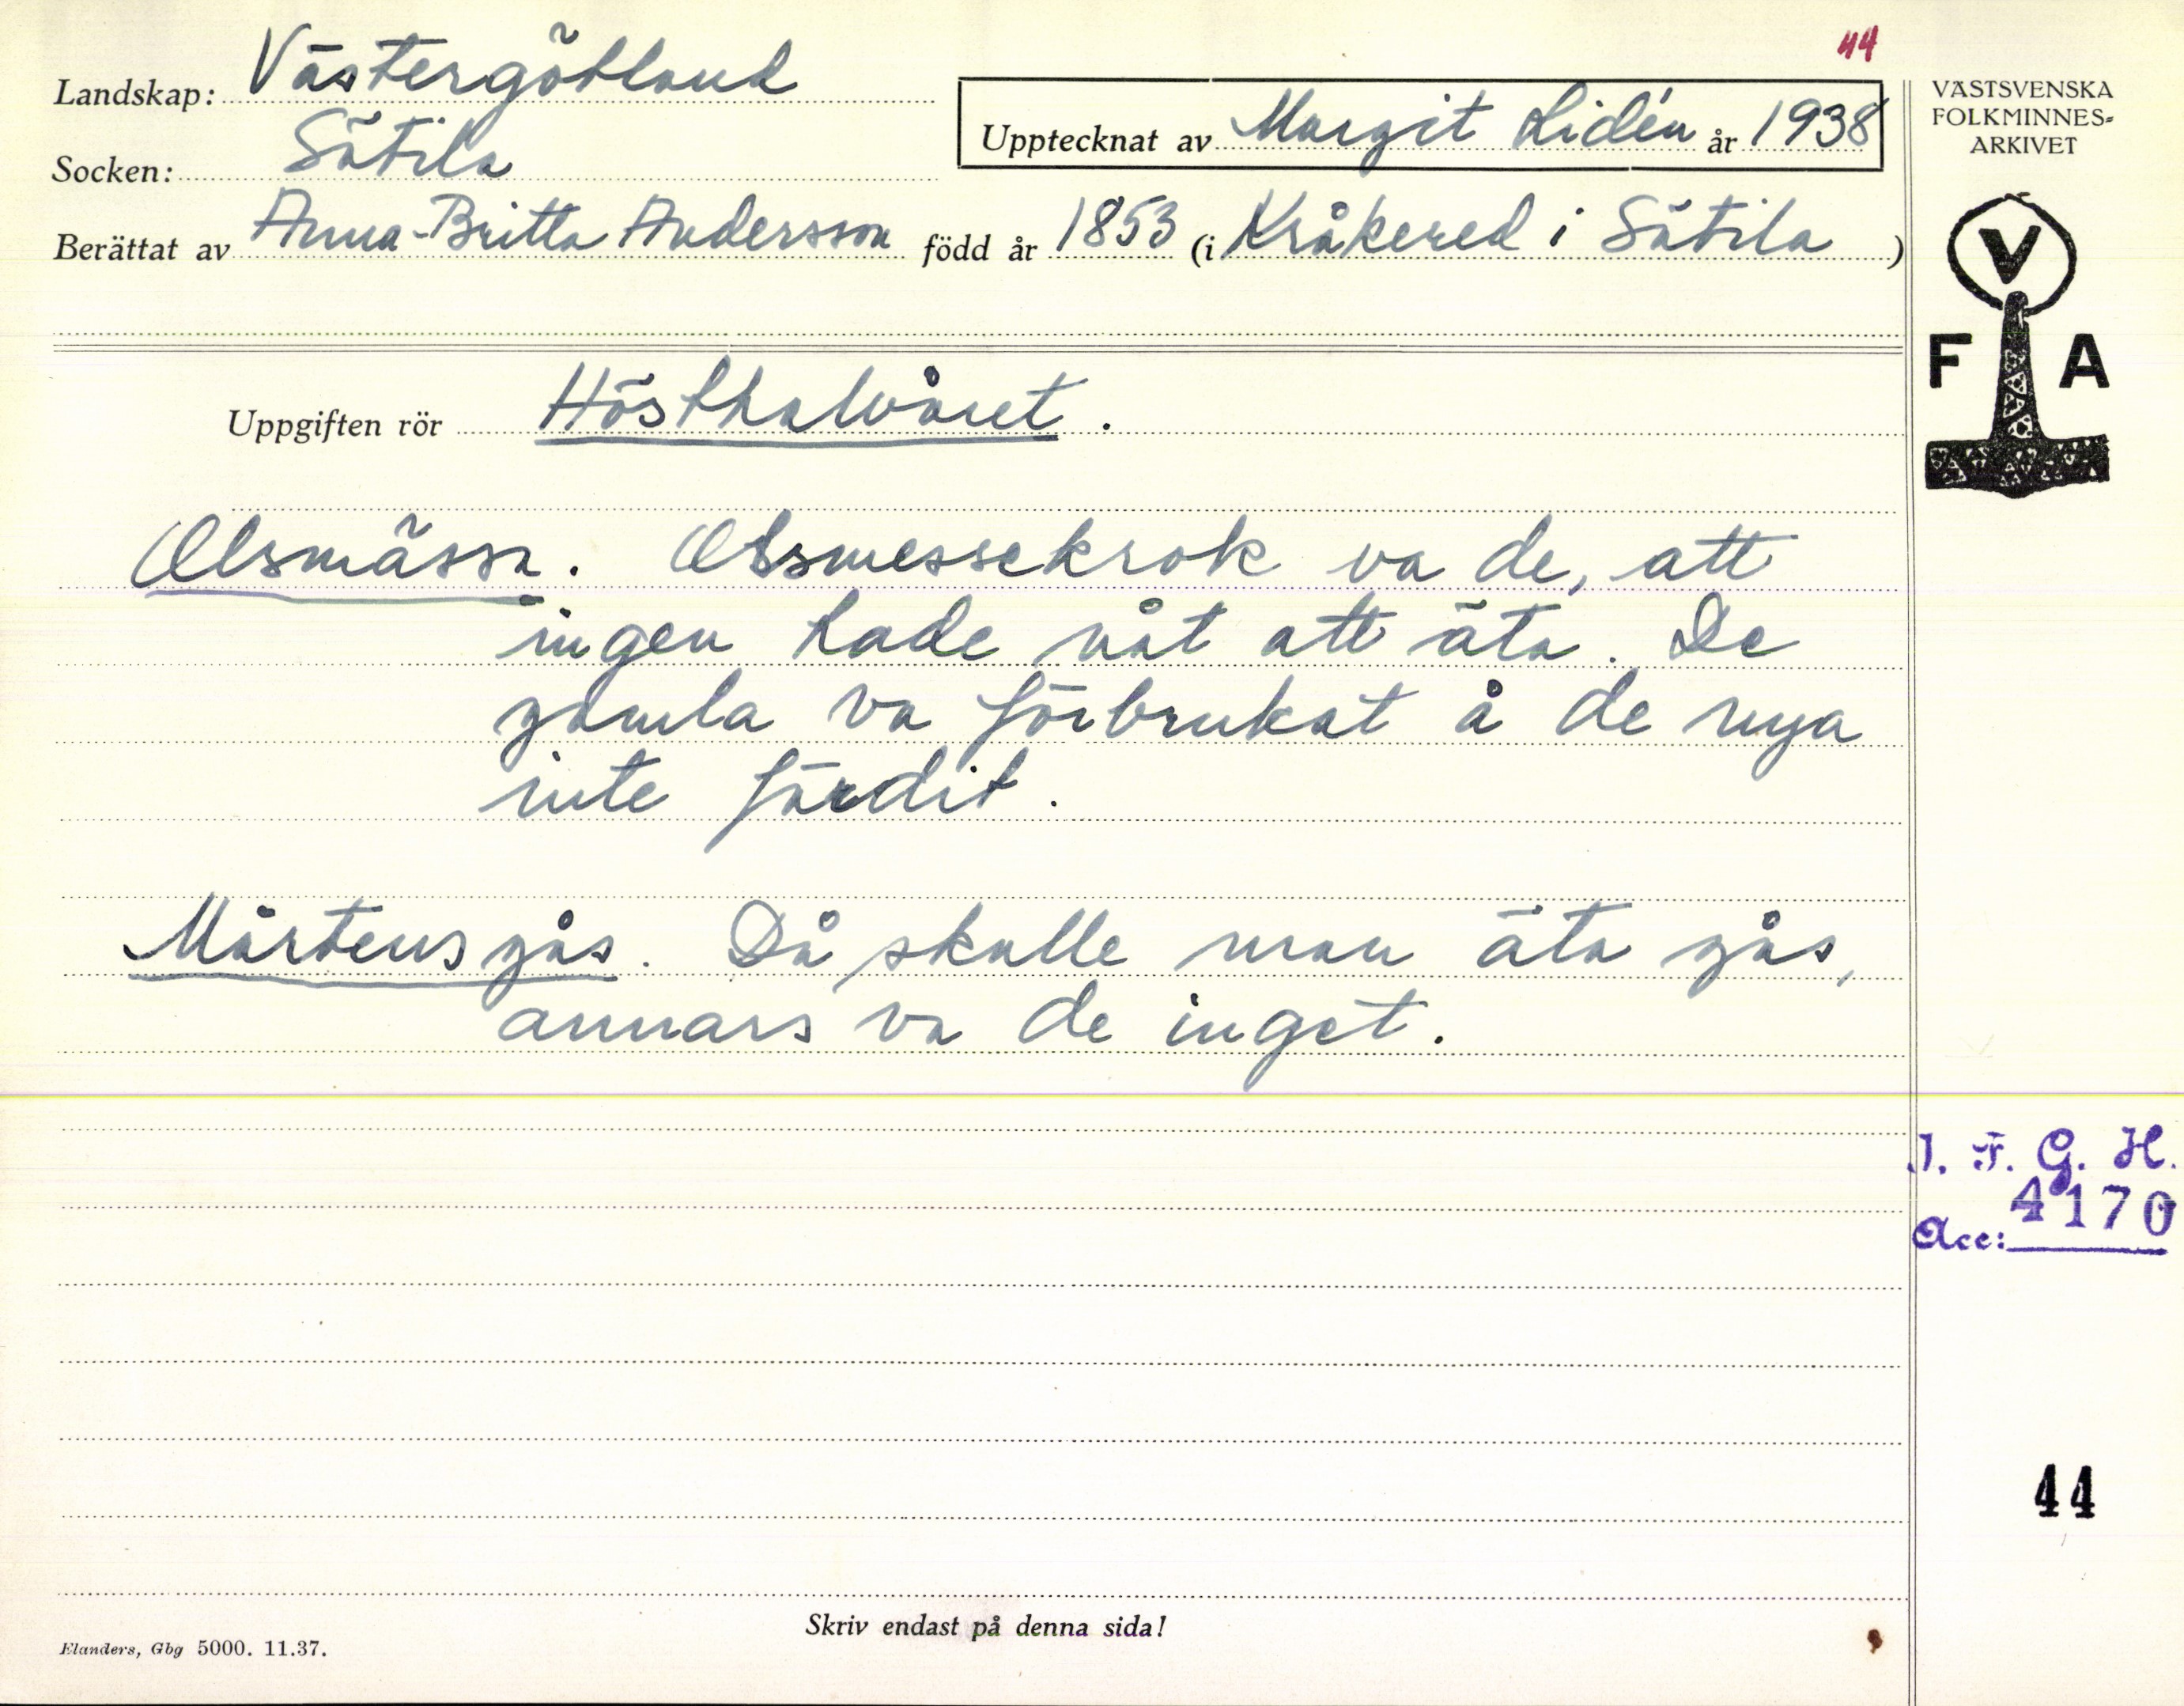 44
Landskap: Västergötland
Socken: Sätila
Upptecknat av Margit Lidén år 1938
Berättat av Anna-Britta Andersson född år 1853 (i Kråkered i Sätila)
VÄSTSVENSKA
FOLKMINNES=
ARKIVET
V
F A
Uppgiften rör Hösthalvåret.
Olsmässa. Olssmessekrok va de, att
ingen hade nåt att äta. De
gamla va förbrukat å de nya
inte färdit.
Mårtensgås. Då skulle man äta gås,
annars va de inget.
I. F. G. H.
4170
Acc:
44
Skriv endast på denna sida!
Elanders, Gbg 5000. 11.37.